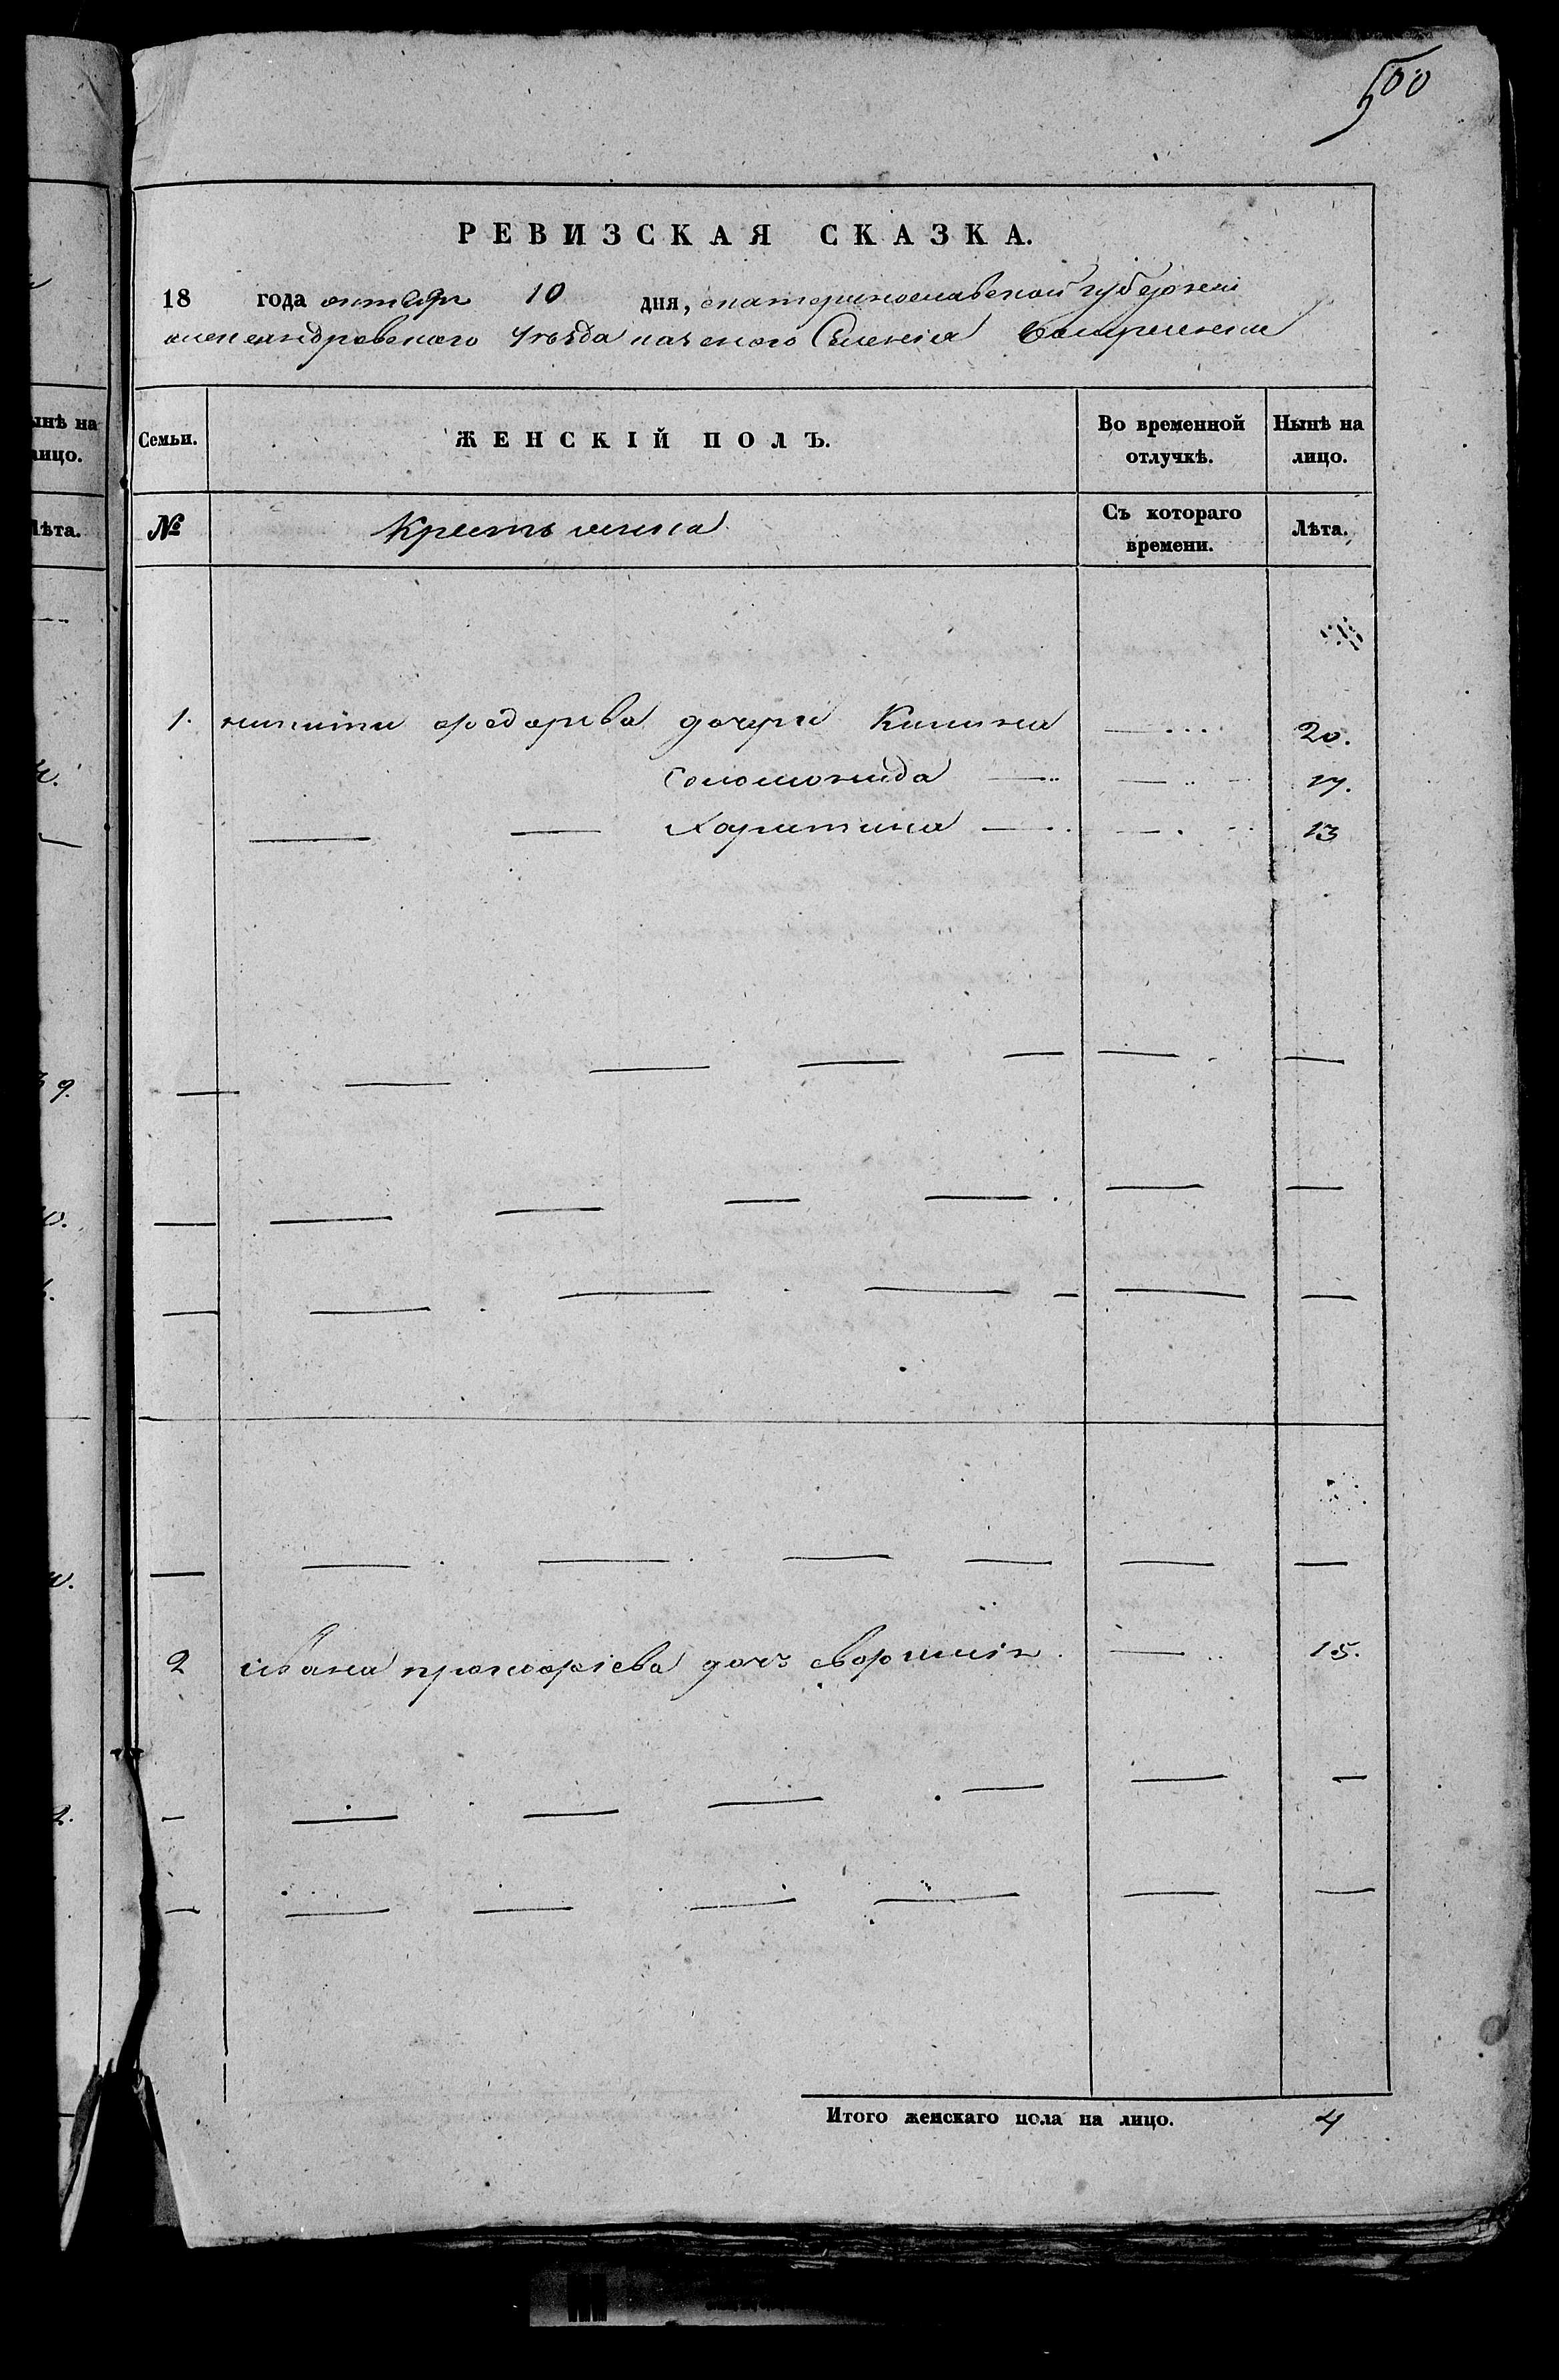 500
РЕВИЗСКАЯ СКАЗКА.
18 года октября 10 дня, екатеринославской губернiи
александровского уѣзда казеного Селенiя
Семьи. ЖЕНСКIЙ ПОЛЪ. Во временной отлучкѣ. Нынѣ на лицо.
№ Крестьянка Съ котораго времени. Лѣта.
1. никиты федорова дочери Килина — 20.
Соломонида — — 17.
— — Харитина — — 13
— — — — — — —
— — — — — — —
— — — — — — —
— — — — — — —
2 iвана прокофiева дочъ — 15.
— — — — — — —
— — — — — — —
Итого женскаго пола на лицо. 4
ынѣ на
лицо.
Лѣта.
9.
0.
2.